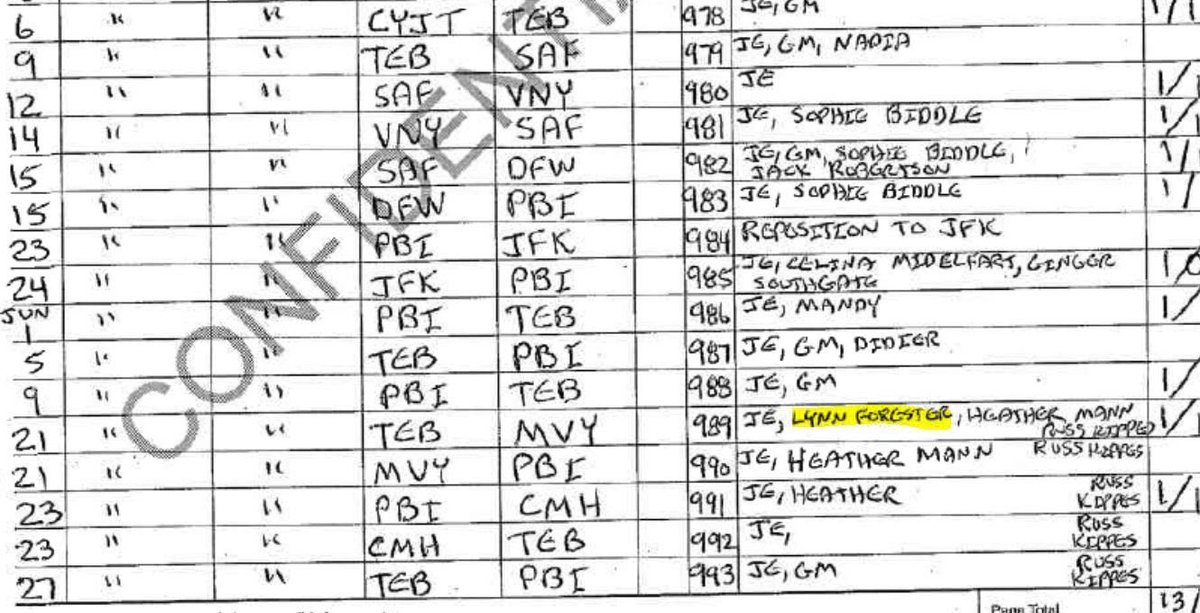 6 " " CYJT TEB 978 JE, GM 1/1
9 " " TEB SAF 979 JE, GM, NADIA
12 " " SAF VNY 980 JE 1/
14 " " VNY SAF 981 JE, SOPHIE BIDDLE 1/
15 " " SAF DFW 982 JE, GM, SOPHIE BIDDLE, 1/
JACK ROBERTSON
15 " " DFW PBI 983 JE, SOPHIE BIDDLE 1/
23 " " PBI JFK 984 REPOSITION TO JFK
24 " " JFK PBI 985 JE, CELINA MIDELFART, GINGER 1/0
SOUTHGATE
JUN
1 " " PBI TEB 986 JE, MANDY 1/
5 " " TEB PBI 987 JE, GM, DIDIER
9 " " PBI TEB 988 JE, GM 1/
21 " " TEB MVY 989 JE, LYNN FORESTER, HEATHER MANN 1/
RUSS KIPPED
21 " " MVY PBI 990 JE, HEATHER MANN RUSS KIPPES
23 " " PBI CMH 991 JE, HEATHER RUSS 1/
KIPPES
23 " " CMH TEB 992 JE, RUSS
KIPPES
27 " " TEB PBI 993 JE, GM RUSS
KIPPES
Page Total 13/
CONFIDENTI